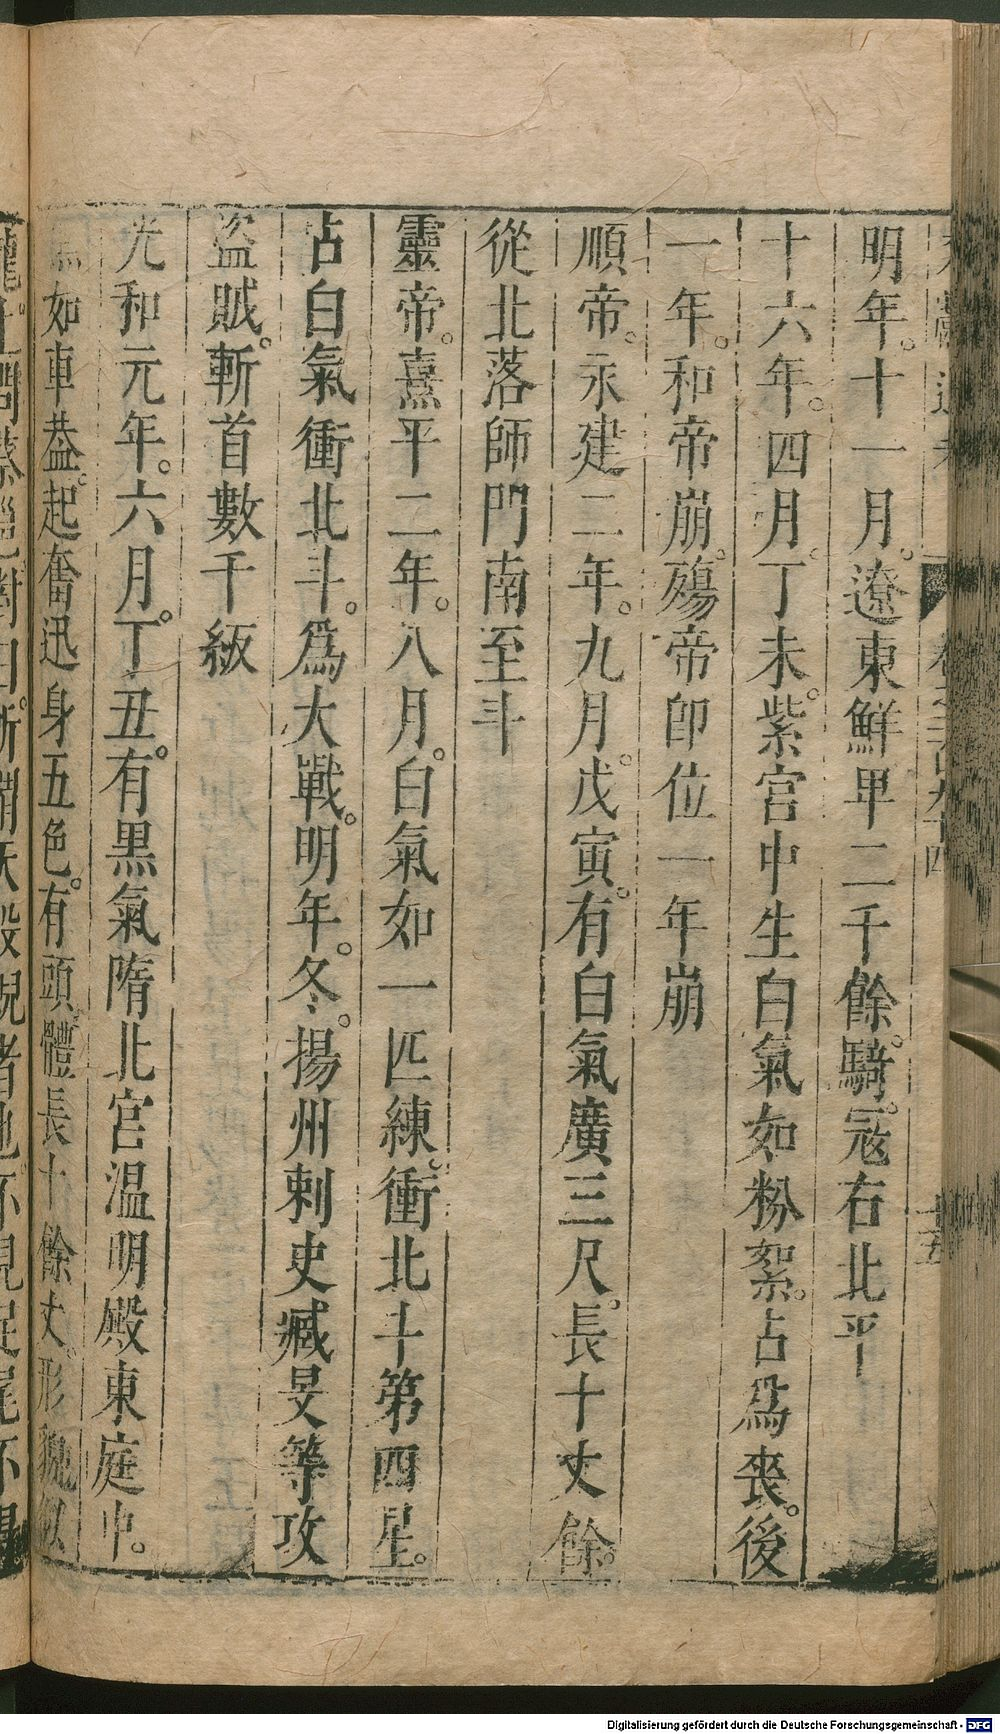 明年。十一月。遼東鮮卑二千餘。騎。寇右北平
十六年。四月。丁未。紫宮中生白氣如粉絮。占爲喪。後
一年。和帝崩。殤帝卽位一年崩
順帝。永建二年。九月。戊寅。有白氣廣三尺。長十丈餘。
從北落師門南至斗
靈帝。熹平二年。八月。白氣如一匹練。衝北斗第四星。
占白氣衝北斗。爲大戰。明年。冬。揚州刺史臧旻等攻
盜賊。斬首數千級
光和元年。六月。丁丑。有黑氣墮北宮温明殿東庭中。
黑如車葢。起奮迅身五色。有頭體長十餘丈。形貌似
Digitalisierung gefördert durch die Deutsche Forschungsgemeinschaft - DFG